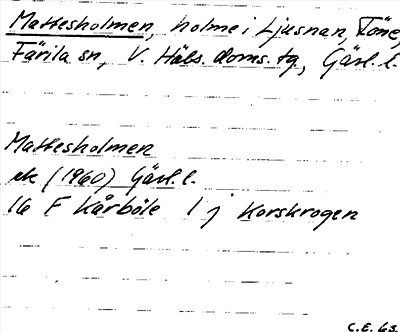 Mattesholmen, holme i Ljusnan, Töne,
Färila sn, V. Häls. doms. tg, Gävl. l.
Mattesholmen
ek (1960) Gävl. l.
16 F Kårböle 1 j Korskrogen
C.E. 63.